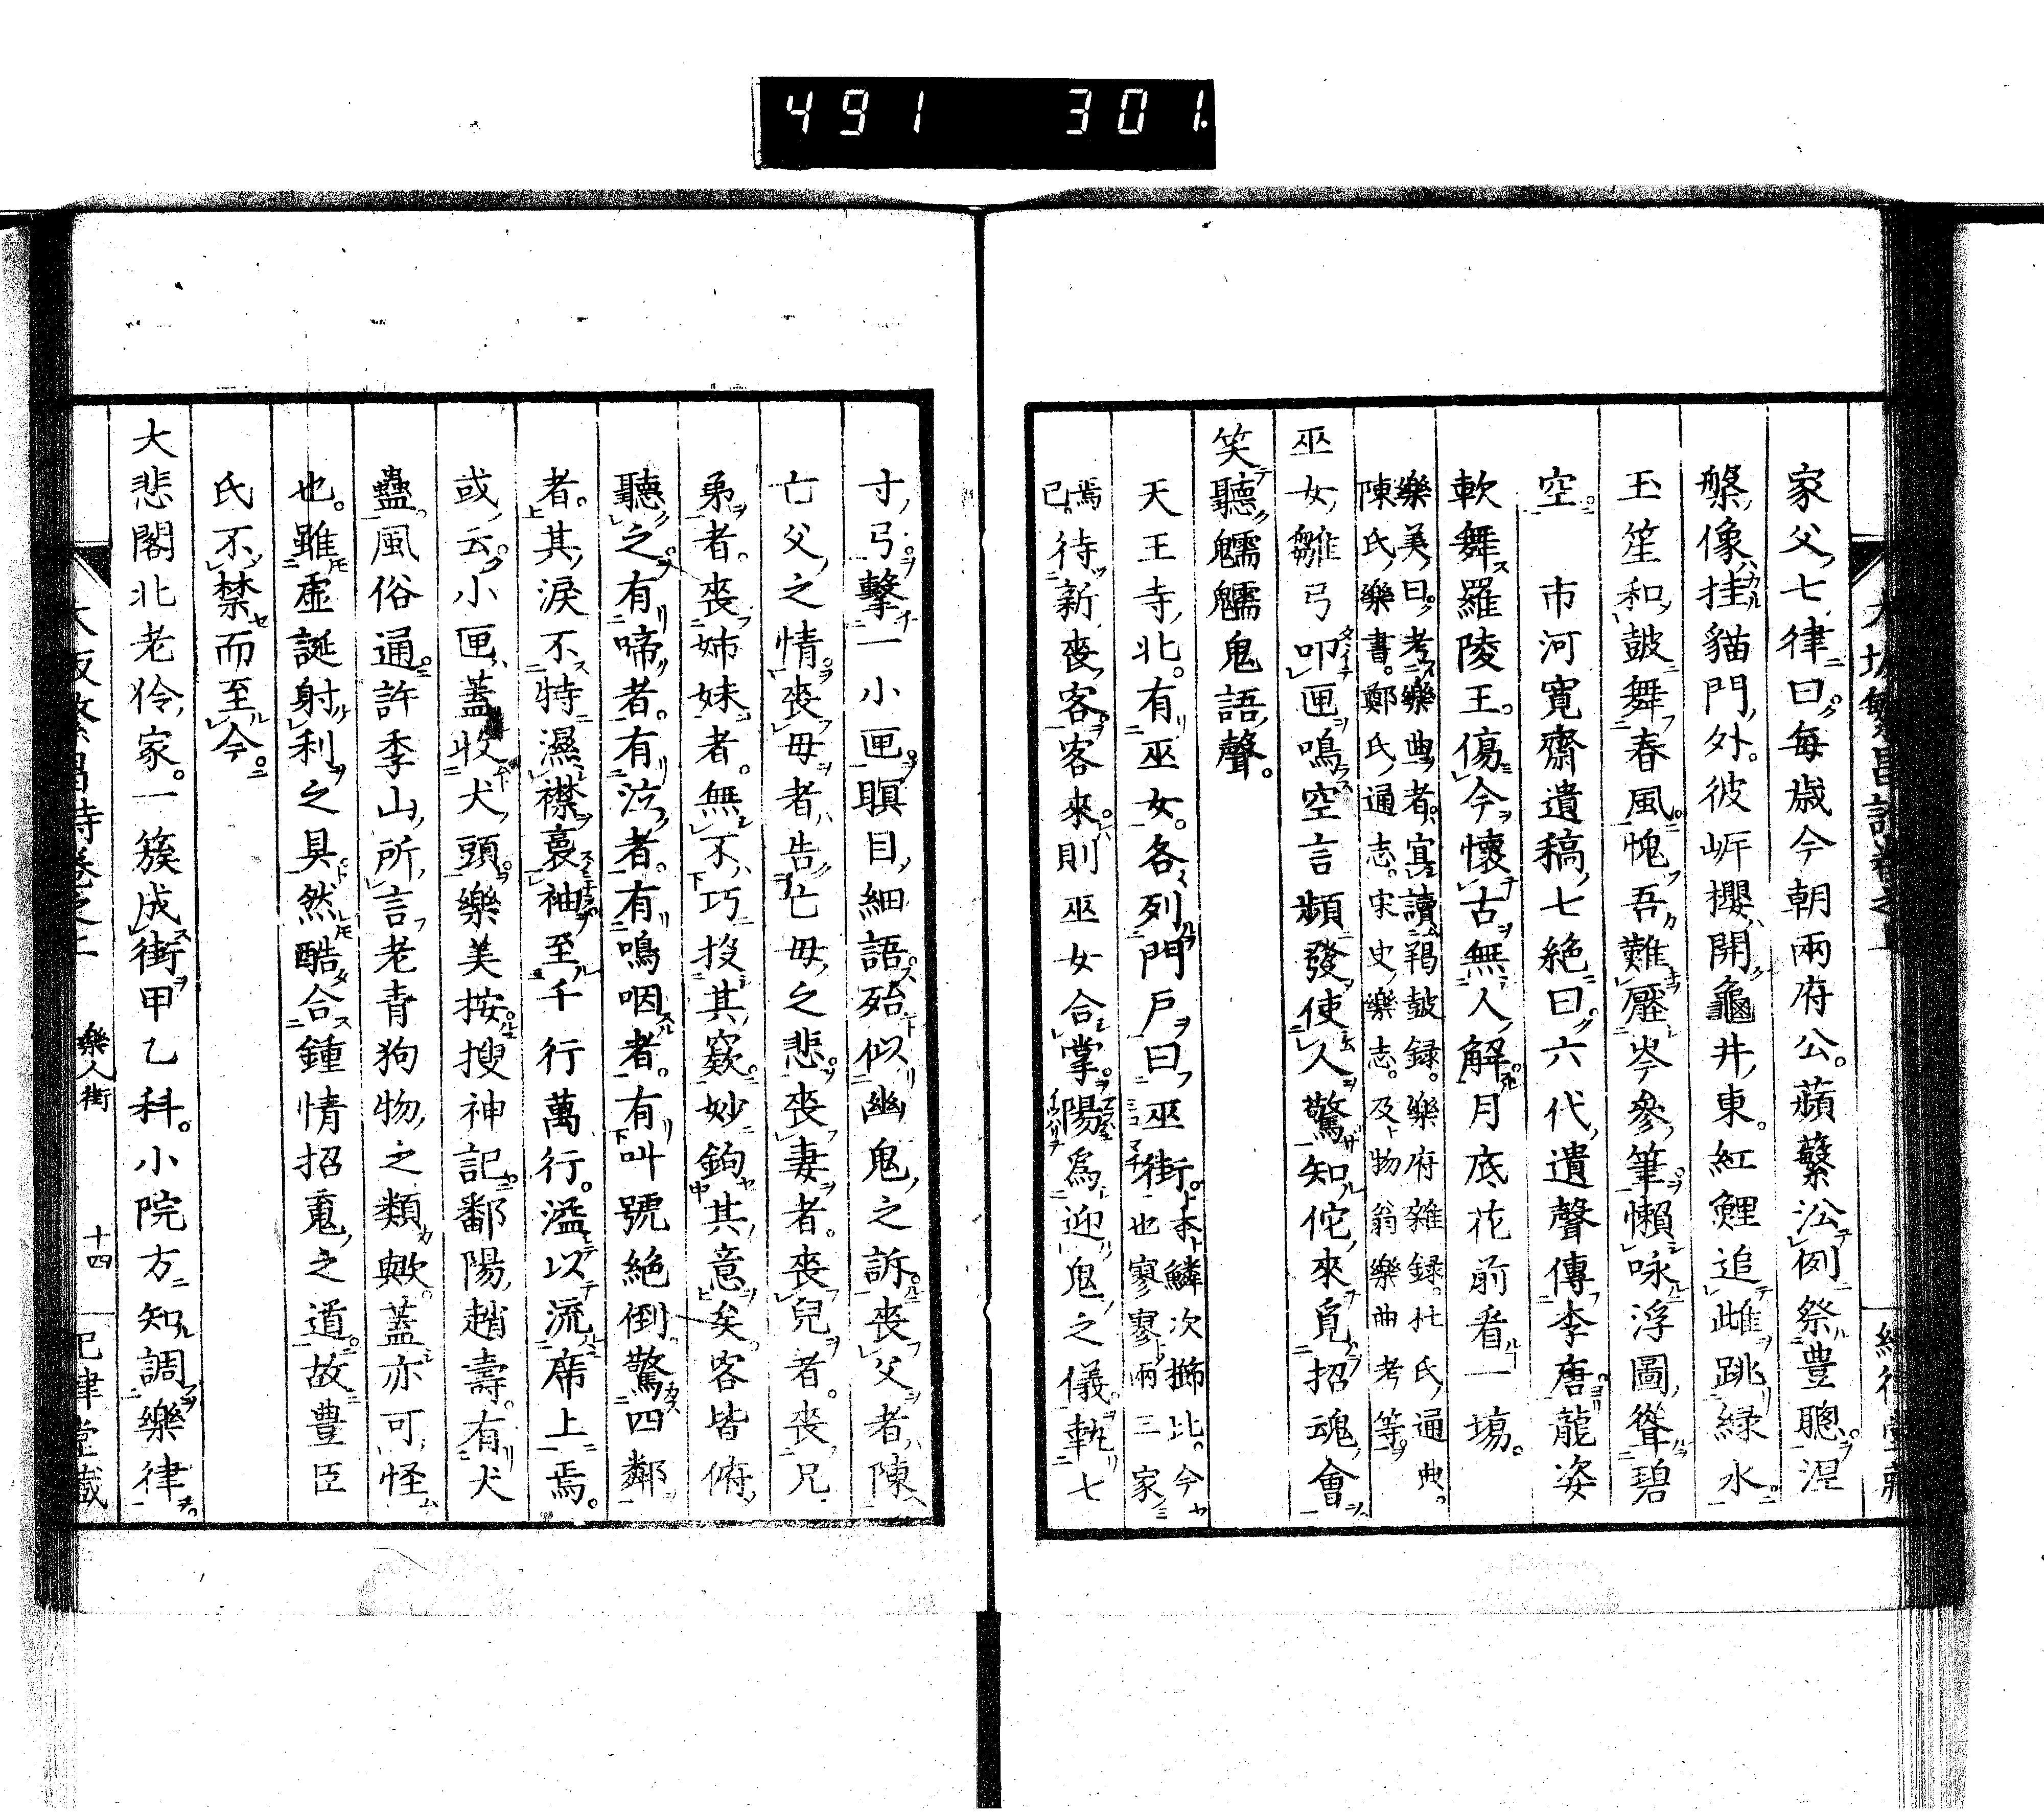 491 301.
家父七律曰每歳今朝兩府公。蘋蘩沿例祭豊聰。涅
槃像挂貓門外。彼岍櫻開龜井東。紅鯉追雌跳緑水。
玉笙和皷舞春風。愧吾難壓岑參筆。懶咏浮圖聳碧
空。 市河寛齋遺稿七絶曰。六代遺聲傳李唐。龍姿
軟舞羅陵王。傷今懷古無人解。月底花前看一場。
樂美曰。考樂典者。宜讀羯皷録。樂府雜録。杜氏通典。
陳氏樂書。鄭氏通志。宋史樂志。及物翁樂曲考等。
巫女雛弓叩匣鳴。空言頻發使人驚。知佗來覓招魂會。
笑聽魖魖鬼語聲。
天王寺北。有巫女。各列門戸。曰巫街。本鱗次櫛比。今
也寥寥兩三家
焉
已。待新喪客。客來則巫女合掌。陽為迎鬼之儀。執七
寸弓。擊一小匣。瞑目細語。殆似幽鬼之訴。喪父者陳
亡父之情。喪母者告亡母之悲。喪妻者。喪兒者。喪兄
弟者。喪姉妹者。無不巧投其窾。妙鉤其意矣。客皆俯
聽之。有啼者。有泣者。有鳴咽者。有叫號絶倒驚四鄰
者。其淚不特濕襟裛袖。至千行萬行。溢以流席上焉。
或云。小匣蓋收犬頭。樂美按。搜神記。鄱陽趙壽。有犬
蠱。風俗通。許季山所言老青狗物之類歟。蓋亦可怪
也。雖虛誕射利之具。然酷合鍾情招䰟之道。故豊臣
氏不禁而至今。
大悲閣北老伶家。一簇成街甲乙科。小院方知調樂律。
樂人街
十四